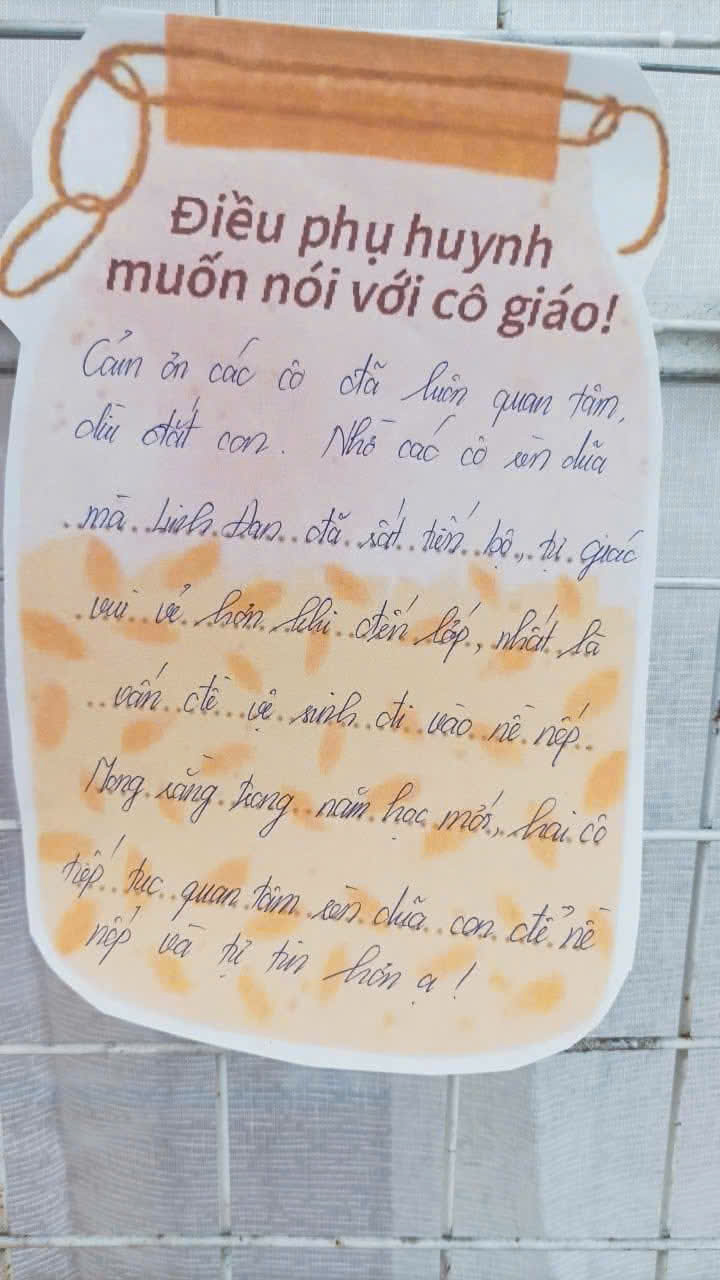 Điều phụ huynh
muốn nói với cô giáo!
Cảm ơn các cô đã luôn quan tâm,
dìu dắt con. Nhờ các cô rèn dũa
mà Linh Đan đã rất tiến bộ, tự giác
vui vẻ hơn khi đến lớp, nhất là
vấn đề vệ sinh đi vào nề nếp.
Mong rằng trong năm học mới, hai cô
tiếp tục quan tâm rèn dũa con để nề
nếp và tự tin hơn ạ!